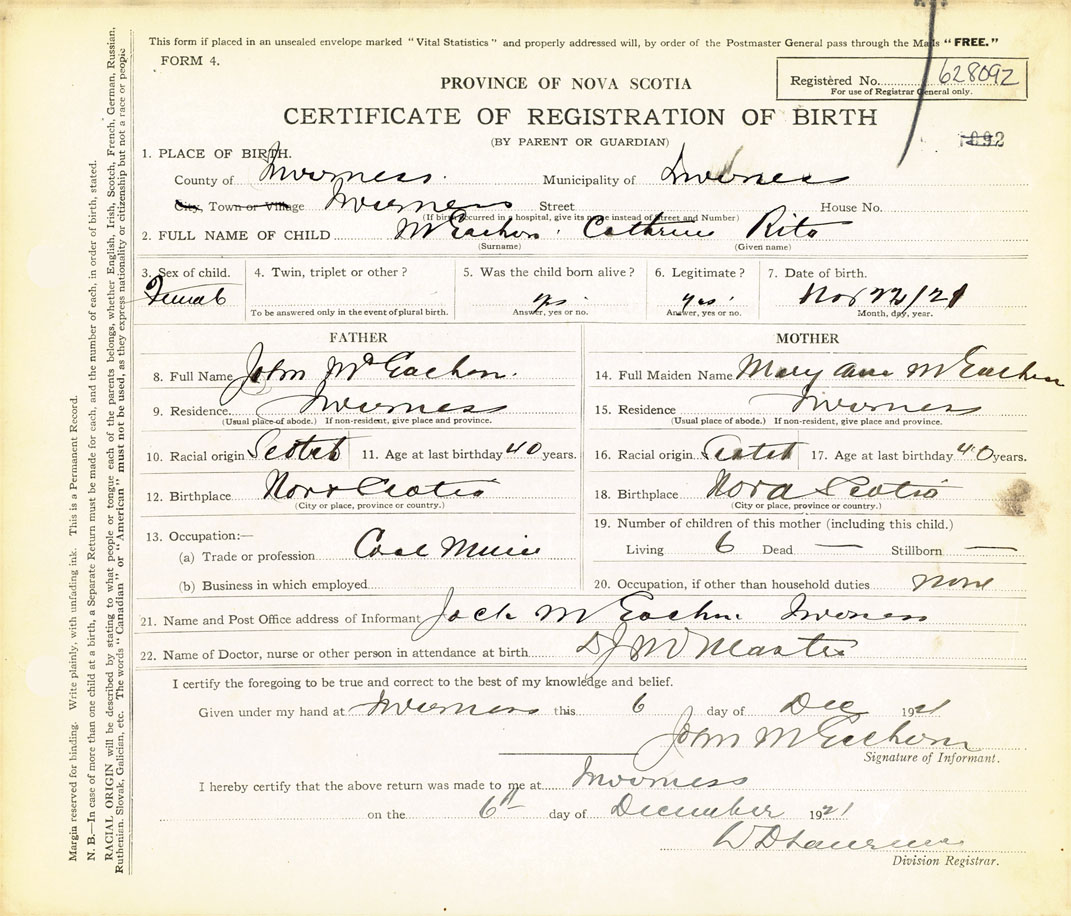 This form if placed in an unsealed envelope marked "Vital Statistics" and properly addressed will, by order of the Postmaster General pass through the Mails "FREE."
FORM 4.
Registered No. 628092
For use of Registrar General only.
PROVINCE OF NOVA SCOTIA
CERTIFICATE OF REGISTRATION OF BIRTH
(BY PARENT OR GUARDIAN)
1. PLACE OF BIRTH.
County of Inverness Municipality of Inverness
City, Town or Village Inverness Street House No.
(If birth occurred in a hospital, give its name instead of Street and Number)
2. FULL NAME OF CHILD McEachern Cathrine Rita
(Surname) (Given name)
3. Sex of child. 4. Twin, triplet or other? 5. Was the child born alive? 6. Legitimate? 7. Date of birth.
Female yes yes Nov 22/21
To be answered only in the event of plural birth. Answer, yes or no. Answer, yes or no. Month, day, year.
FATHER
8. Full Name John McEachern
9. Residence Inverness
(Usual place of abode.) If non-resident, give place and province.
10. Racial origin Scotch 11. Age at last birthday 40 years.
12. Birthplace Nova Scotia
(City or place, province or country.)
13. Occupation:—
(a) Trade or profession Coal Miner
(b) Business in which employed
MOTHER
14. Full Maiden Name Mary Ann McEachern
15. Residence Inverness
(Usual place of abode.) If non-resident, give place and province.
16. Racial origin Scotch 17. Age at last birthday 40 years.
18. Birthplace Nova Scotia
(City or place, province or country.)
19. Number of children of this mother (including this child.)
Living 6 Dead — Stillborn —
20. Occupation, if other than household duties none
21. Name and Post Office address of Informant Jack McEachern Inverness
22. Name of Doctor, nurse or other person in attendance at birth D J McMaster
I certify the foregoing to be true and correct to the best of my knowledge and belief.
Given under my hand at Inverness this 6 day of Dec 1921
John McEachern
Signature of Informant.
I hereby certify that the above return was made to me at Inverness
on the 6th day of December 1921
W D
Division Registrar.
Margin reserved for binding. Write plainly, with unfading ink. This is a Permanent Record.
N. B.—In case of more than one child at a birth, a Separate Return must be made for each, and the number of each, in order of birth, stated.
RACIAL ORIGIN will be described by stating to what people or tongue each of the parents belongs, whether English, Irish, Scotch, French, German, Russian,
Ruthenian, Slovak, Galician, etc. The words "Canadian" or "American" must not be used, as they express nationality or citizenship but not a race or people